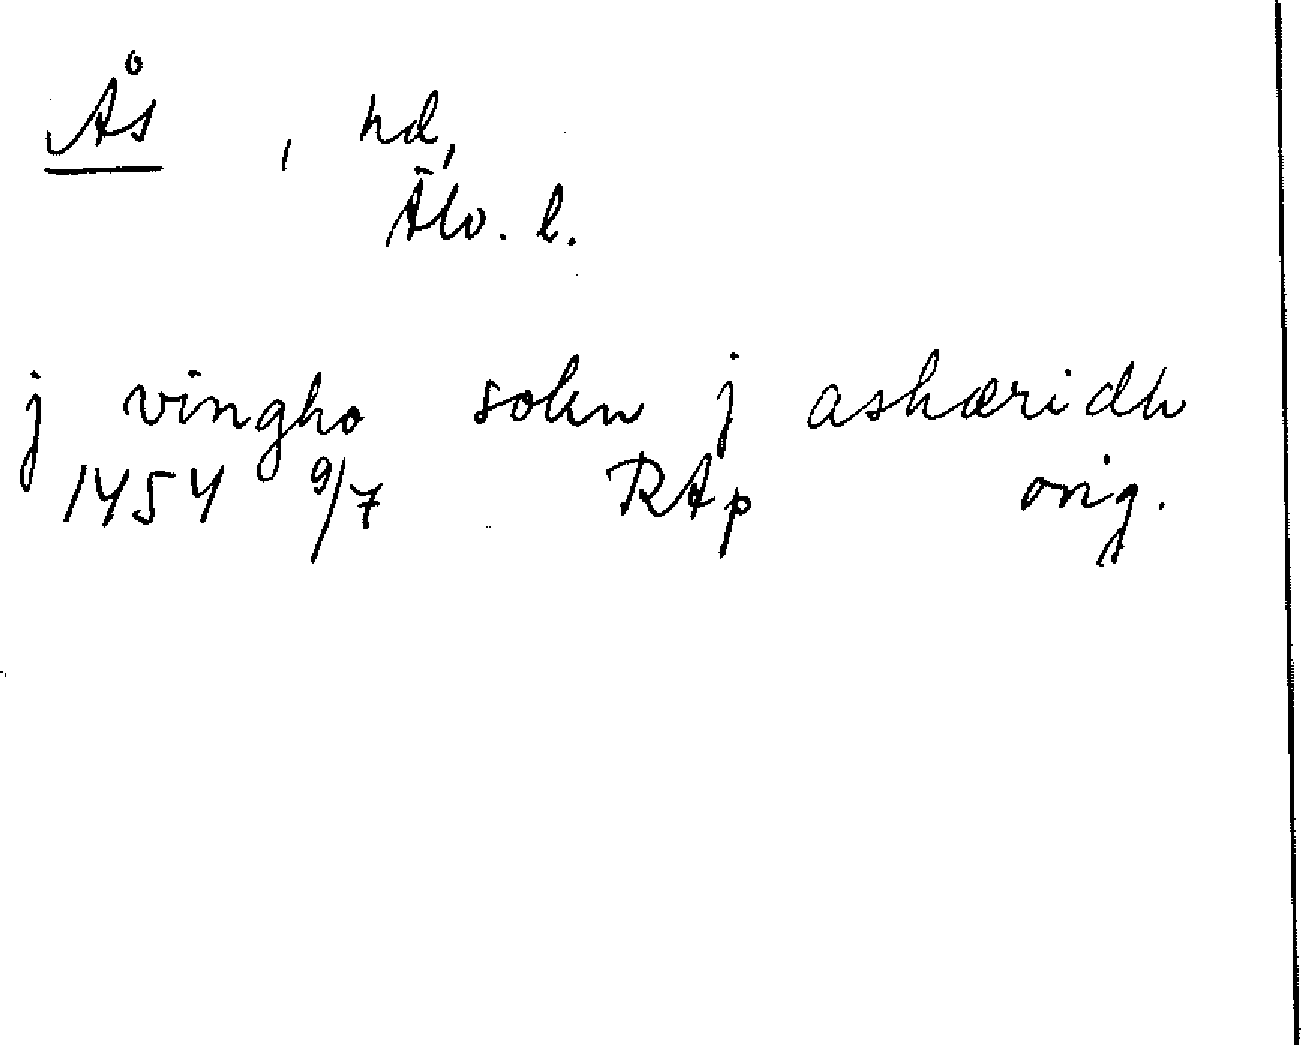 Ås , hd,
Älv. l.
j vingho sokn j ashæridh
1454 9/7 RAp orig.